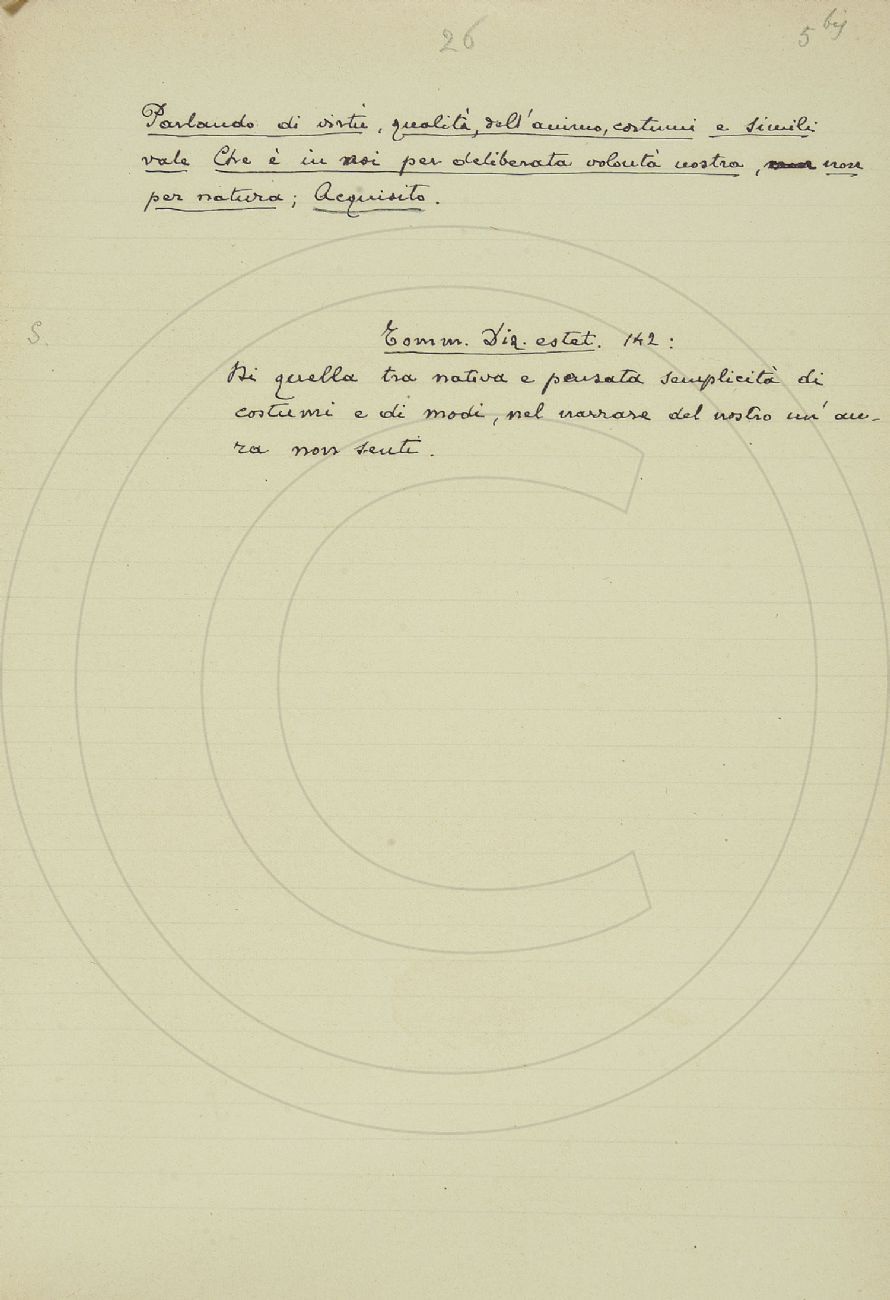 26
5 bis
Parlando di virtù, qualità, dell'animo, costumi e simili
vale Che è in noi per deliberata volontà nostra, non
per natura; Acquisito.
S.
Tomm. Diz. estet. 142:
Di quella tra nativa e pensata semplicità di
costumi e di modi, nel narrare del nostro un' au-
ra non senti.